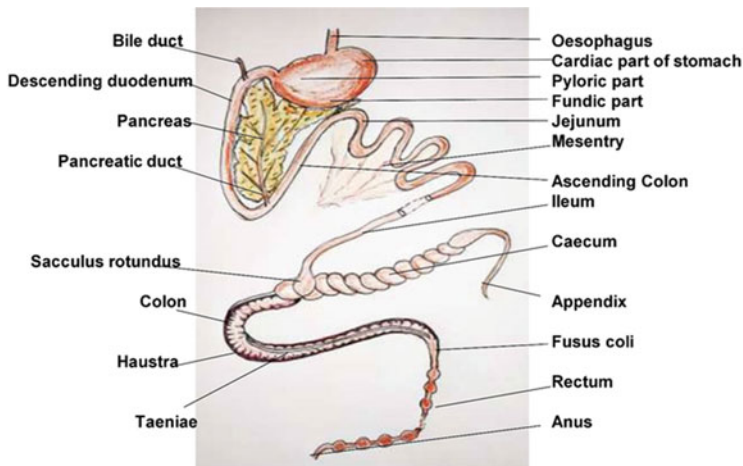 Bile duct
Descending duodenum
Pancreas
Pancreatic duct
Sacculus rotundus
Colon
Haustra
Taeniae
Oesophagus
Cardiac part of stomach
Pyloric part
Fundic part
Jejunum
Mesentry
Ascending Colon
Ileum
Caecum
Appendix
Fusus coli
Rectum
Anus